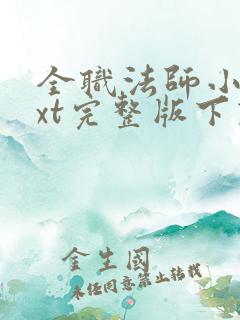 全職法師小
xt完整版下
金生國
未任同意禁止转载